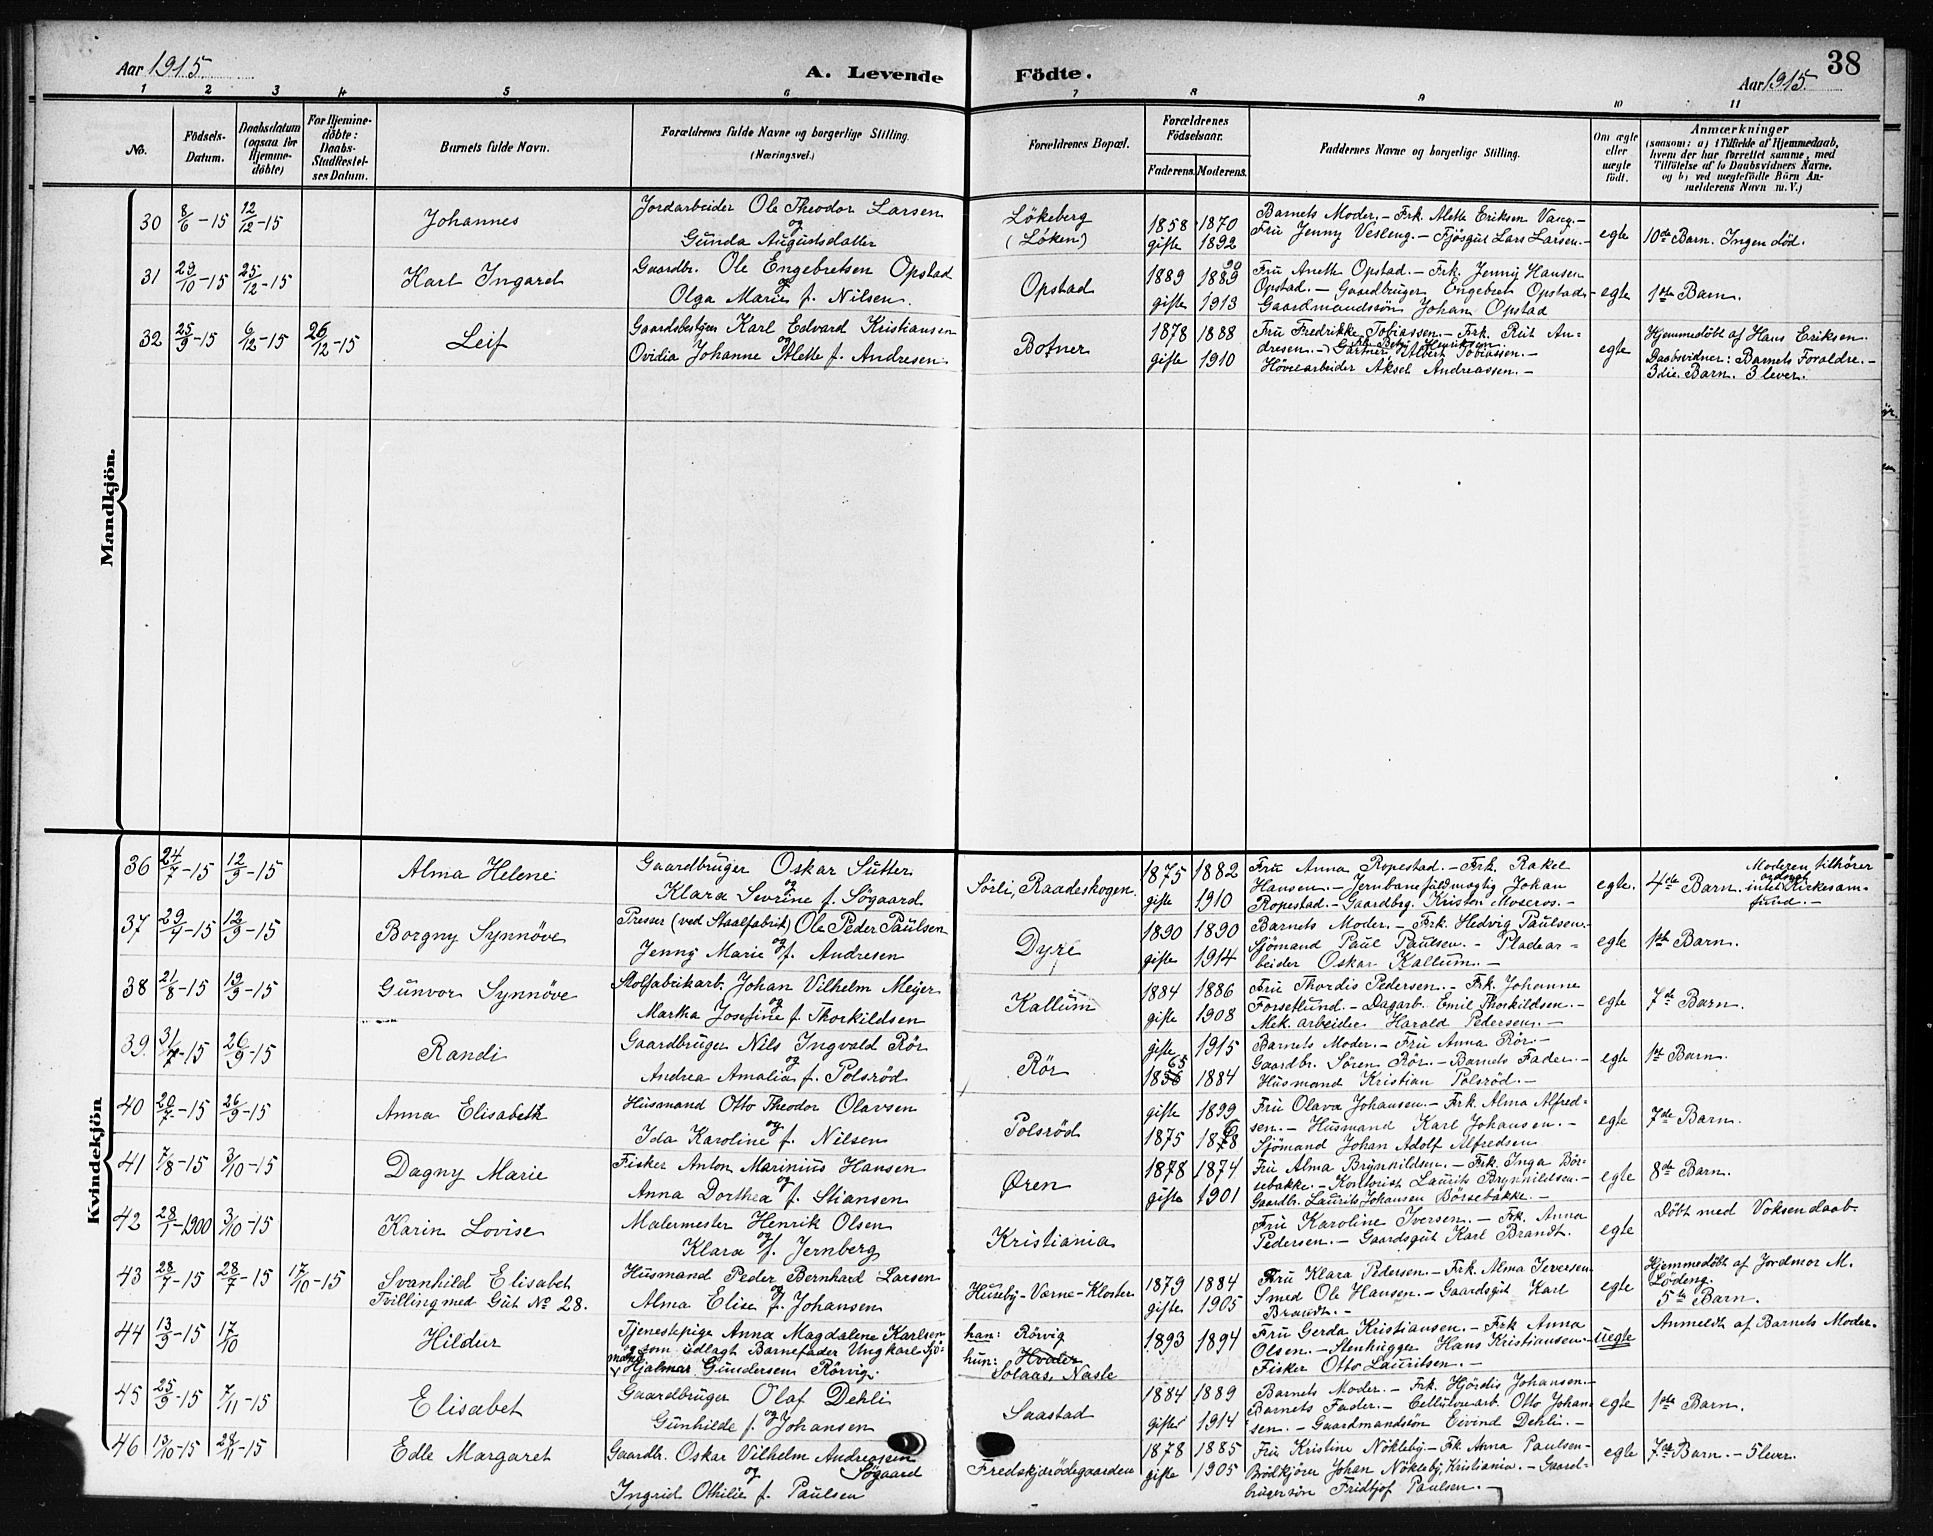 Aar 1915
A. Levende Födte.
Aar 1915
38
1 2 3 4 5 6 7 8 9 10 11
No.
Födsels-Datum.
Daabsdatum (ogsaa for Hjemme-döbte)
For Hjemme-döbte: Daabs-Stadfæstel-ses Datum.
Barnets fulde Navn.
Forældrenes fulde Navne og borgerlige Stilling.
(Næringsvei.)
Forældrenes Bopæl.
Forældrenes Födselsaar.
Faderens. Moderens.
Faddernes Navne og borgerlige Stilling.
Om ægte eller uægte födt.
Anmærkninger
(saasom: a) i Tilfælde af Hjemmedaab,
hvem der har forrettet samme, med
Tilföielse af to Daabsvidners Navne,
og b) ved uægtefödte Börn An-
melderens Navn m. V.)
Mandkjön.
30 8/6-15 12/12-15 Johannes
Jordarbeider Ole Theodor Larsen
og
Gunda Augustsdatter
Lökeberg
(Löken)
1858 1870
gifte 1892
Barnets Moder. - Frk. Alette Eriksen Vang. -
Fru Jenny Vesleng. - Fjösgut Lars Larsen. -
egte
10de Barn. Ingen död.
31 29/10-15 25/12-15 Karl Ingard
Gaardbr. Ole Engebretsen Opstad
og
Olga Marie f. Nilsen.
Opstad
1889 1889 90
gifte 1913
Fru Anette Opstad. - Frk. Jenny Hansen
Opstad. - Gaardbruger Engebret Opstad. -
Gaardmandssön Johan Opstad
egte
1ste Barn.
32 25/9-15 6/12-15 26/12-15 Leif
Gaardsbestyrer Karl Edvard Kristiansen
og
Ovidia Johanne Alette f. Andresen.
Botner
1878 1888
gifte 1910
Fru Fredrikke Tobiassen. - Frk. Rut An-
dresen. - Frk. Betzy Henriksen. Gartner Albert Tobiassen. -
Hövlearbeider Aksel Andreassen. -
egte
Hjemmedöbt af Hans Eriksen
Daabsvidner: Barnets Foraldre. -
3die Barn. 3 lever.
Kvindekjön
36 24/7-15 12/9-15 Alma Helene
Gaardbruger Oskar Sutter
og
Klara Sevrine f. Sögaard
Sörli, Raadeskogen.
1875 1882
gifte 1910
Fru Anna Ropestad. - Frk. Rakel
Hansen. - Jernbanefuldmægtig Johan
Ropestad. - Gaardbrg. Kristen Moseros. -
egte.
4de Barn. Moderen tilhörer
intet ordnet Kirkesam-
fund. -
37 29/7-15 12/9-15 Borgny Synnöve
Presser (ved Staalfabrik) Ole Peder Paulsen
og
Jenny Marie f. Andresen
Dyre
1890 1890
gifte 1914
Barnets Moder. - Frk. Hedvig Paulsen.
Sjömand Paul Paulsen. - Pladear-
beider Oskar Kallum. -
egte
1ste Barn.
38 21/8-15 19/9-15 Gunvor Synnöve
Stolfabrikarb. Johan Vilhelm Meyer
og
Martha Josefine f. Thorkildsen
Kallum
1884 1886
gifte 1908
Fru Thordis Pedersen. - Frk. Johanne
Forsetlund. - Dagarb. Emil Thorkildsen. -
Mek. arbeider Harald Pedersen. -
egte
7de Barn.
39. 31/7-15 26/9-15 Randi
Gaardbruger Nils Ingvald Rör
og
Andrea Amalia f. Polsröd
Rör
gifte 1915
65 1884
Barnets Moder. - Fru Anna Rör. -
Gaardbr. Sören Rör. - Barnets Fader. -
Husmand Kristian Polsröd. -
egte
1ste Barn.
40 20/7-15 26/9-15 Anna Elisabeth
Husmand Otto Theodor Olavsen
og
Ida Karoline f. Nilsen
Polsröd
gifte 1899
1875
Fru Olava Johansen. - Frk. Alma Alfred-
sen. - Husmand Karl Johansen. -
Sjömand Johan Adolf Alfredsen
egte
7de Barn.
41 7/8-15 3/10-15 Dagny Marie
Fisker Anton Marinius Hansen
og
Anna Dorthea f. Stiansen
Øren
1878 1874
gifte 1901
Fru Alma Brynhildsen. - Frk. Inga Bör-
sebakke. - Kontorist Laurits Brynhildsen. -
Gaardbr. Laurits Johansen Börsebakke. -
egte
8de Barn.
42 28/7-1900 3/10-15 Karin Lovise
Malermester Henrik Olsen
og
Klara f. Jernberg
Kristiania
Fru Karoline Iversen. - Frk. Anna
Pedersen. - Gaardsgut Karl Brandt.
egte
Döbt med Voksendaab.
43 28/7-15 28/7-15 17/10-15 Svanhild Elisabet
Tvilling med Gut No 28.
Husmand Peder Bernhard Larsen
og
Alma Elise f. Johansen
Huseby-Værne-Kloster
1879 1884
gifte 1905
Fru Klara Pedersen. - Frk. Alma Iversen
Smed Ole Hansen. - Gaardsgut Karl
Brandt. -
egte
Hjemmedöbt af Jordmor M.
Lödeng.
5te Barn.
44 13/9-15 17/10 Hildur
Tjenestepige Anna Magdalene Karlsen
og som udlagt Barnefader Ungkarl Sjö-
mand Hjalmar Gundersen Rörvig.
han: Rörvig
hun: Hvider
Solaas, Nasle
1893 1894
Fru Gerda Kristiansen. - Frk Anna
Olsen. - Stenhugger Hans Kristiansen. -
Fisker Otto Lauritsen. -
uegte
Anmeldt af Barnets Moder.
45 25/9-15 7/11-15 Elisabet
Gaardbruger Olaf Dehli
og
Gunhilde f. Johansen
Saastad
1884 1889
gifte 1914
Barnets Moder. - Frk. Hjördis Johansen. -
Barnets Fader. - Cellulosearb. Otto Johan-
sen. - Gaardmandssön Eivind Dehli. -
egte
1ste Barn.
46 13/10-15 28/11-15 Edle Margaret
Gaardb. Oskar Vilhelm Andreassen
og Sögaard
Ingrid Othilie f. Paulsen
Fredskjærödegaarden
1878 1885
gifte 1905
Fru Kristine Nökleby - Frk. Anna Paulsen -
Brödkjörer Johan Nökleby, Kristiania. - Gaard-
brugersön Fridtjof Paulsen. -
egte
7de Barn - 5 lever.